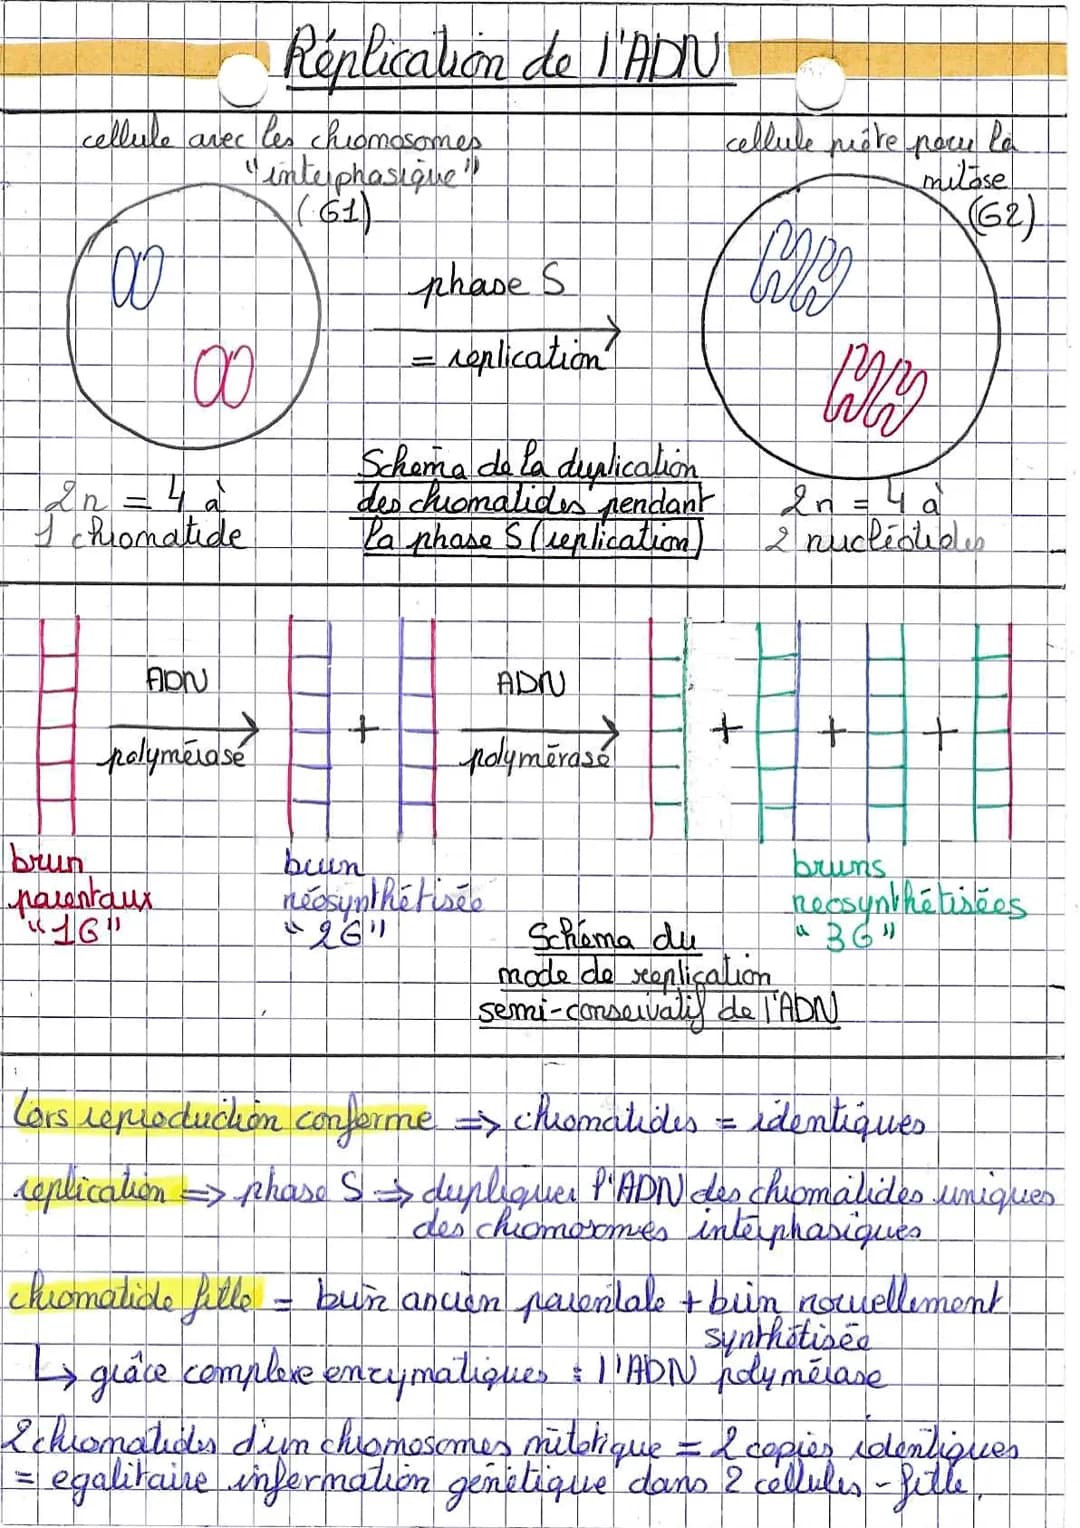 Réplication de l'ADN
cellule avec les chromosomes
"interphasique"
(G1)
cellule prête pour la
mitose
(G2)
phase S
= replication
2n = 4 à
1 chromatide
Schema de la duplication
des chromatides pendant
la phase S (replication)
2n = 4 à
2 nucléotides
ADN
polymérase
+
ADN
polymérase
+
+
+
brun
parentaux
"1G"
brun
néosynthétisée
"2G"
bruns
neosynthétisées
"3G"
Schéma du
mode de replication
semi-conservatif de l'ADN
Lors reproduction conforme => chromatides = identiques
replication => phase S => dupliquer l'ADN des chromatides uniques
des chromosomes interphasiques
chromatide fille = brin ancien parentale + brin nouvellement
synthétisée
↳ grâce complexe enzymatiques : l'ADN polymérase
2 chromatides d'un chromosomes mitotique = 2 copies identiques
= egalitaire information génétique dans 2 cellules-fille.